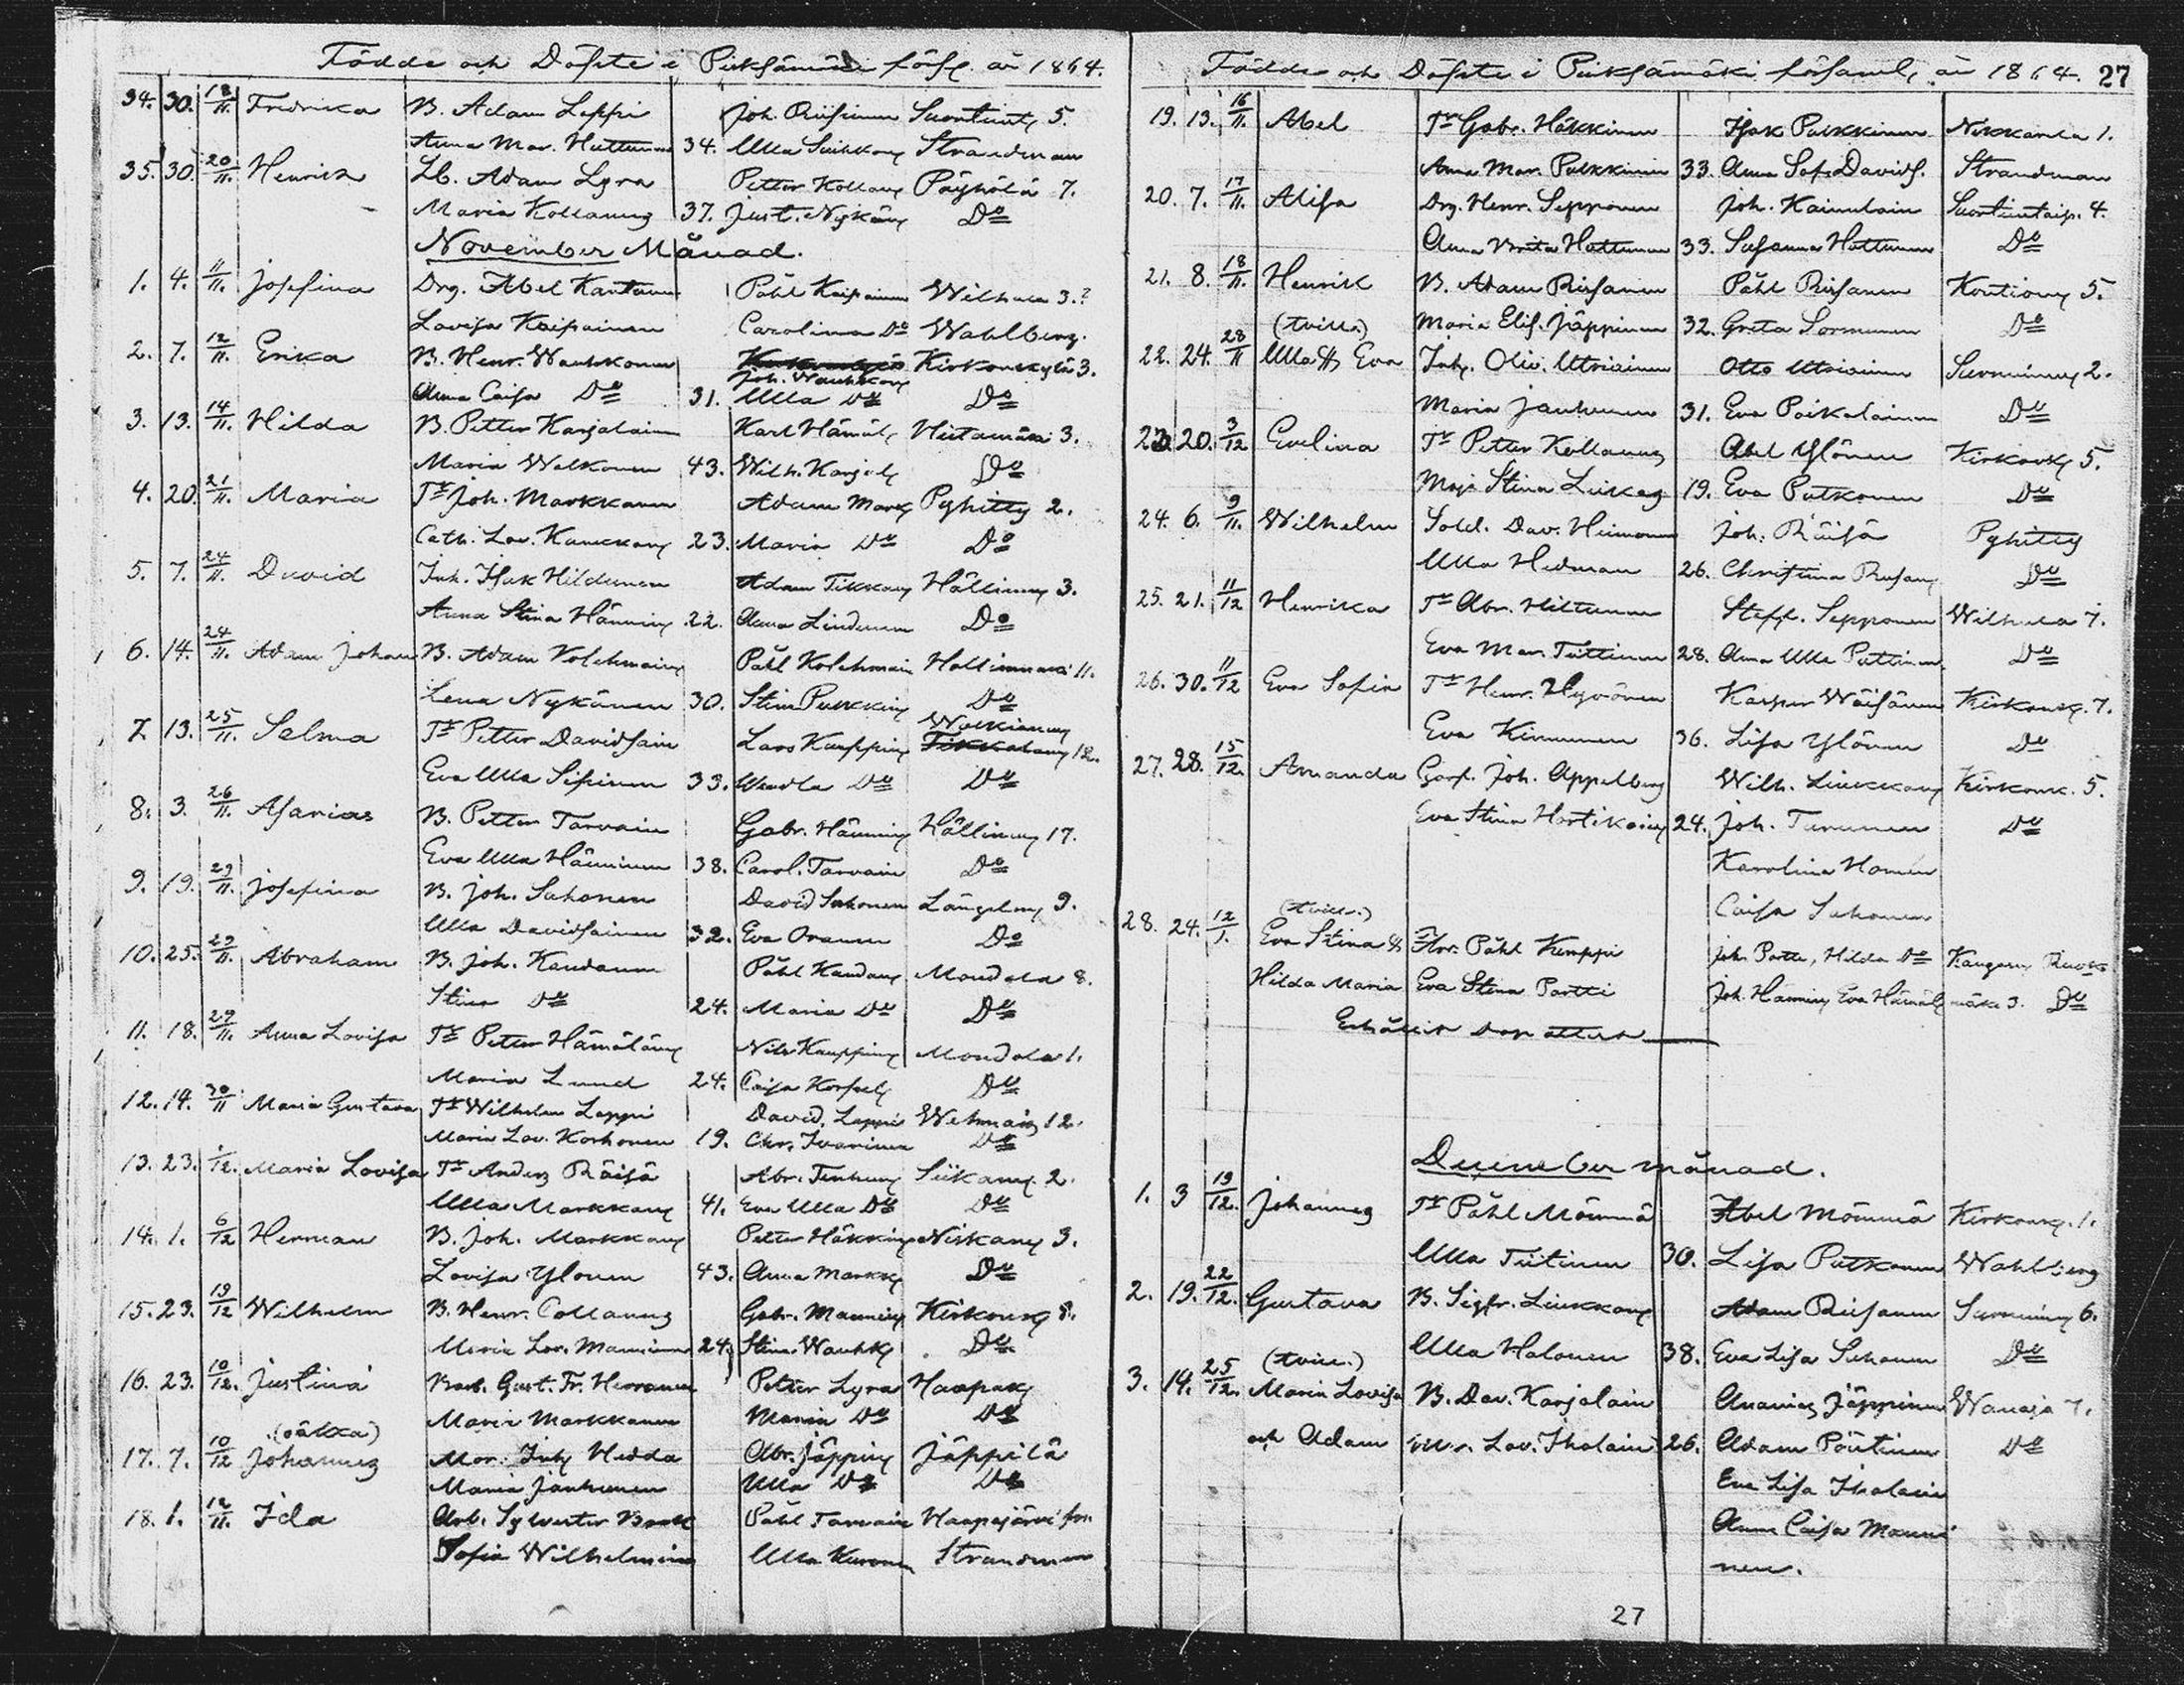 Födde och Döpte i Pieksämäki förs. år 1864.
34. 30. 18/11. Fredrika B. Adam Leppi Joh. Riisinen Suontient 5.
Anna Mar. Huttunen 34. Ulla Suihkon Strandman
35. 30. 20/11. Henrik Lb. Adam Lyra Petter Kollan Pöyhölä 7.
Maria Kollanus 37. Just. Nykän Do
November Månad.
1. 4. 11/11. Josefina Drg. Abel Kantanen Påhl Kaipainen Wilhula 3.?
Lovisa Kaipainen Carolina Do Wahlberg.
2. 7. 12/11. Erika B. Henr. Wauhkonen Kirkonkylä 3.
Joh. Wauhkon
Anna Caisa Do 31. Ulla Do Do
3. 13. 14/11. Hilda B. Petter Karjalain Karl Hämäl. Hietamäki 3.
Maria Walkonen 43. Wilh. Karjal. Do
4. 20. 21/11. Maria Tr Joh. Markkanen Adam Mark Pyhitty 2.
Cath. Lov. Kaukkan 23. Maria Do Do
5. 7. 24/11. David Inh. Isak Hildunen Adam Tikkan Hällinmy 3.
Anna Stina Hännin 22. Anna Lindman Do
6. 14. 24/11. Adam Johan B. Adam Kolehmain Påhl Kolehmain Hallinmäki 11.
Lena Nykänen 30. Stina Pulkkin Do
Walkiamy
7. 13. 25/11. Selma Tr Petter Davidsain Lars Kauppin Tikkalamy 12.
Eva Ulla Sipinen 33. Wendla Do Do
8. 3. 26/11. Asarias B. Petter Tarvain Gabr. Hännin Hällinmy 17.
Eva Ulla Hänninen 38. Carol. Tarvain Do
9. 19. 29/11. Josefina B. Joh. Sahonen David Sahonen Längelmy 9.
Ulla Davidsainen 32. Eva Oranen Do
10. 25. 29/11. Abraham B. Joh. Kandanen Påhl Kandan Maudola 8.
Stina Do 24. Maria Do Do
11. 18. 29/11. Anna Lovisa Tr Petter Hämäläin Nils Kauppin Maudola 1.
Maria Lund 24. Caisa Korpel. Do
12. 14. 30/11 Maria Gustava Tr Wilhelm Leppi David Leppi Wehmais 12.
Maria Lov. Korhonen 19. Chr. Ivarinen Do
13. 23. 1/12. Maria Lovisa Tr Anders Räisä Abr. Tenhun Siikamy 2.
Ulla Markkan 41. Eva Ulla Do Do
14. 1. 6/12 Herman B. Joh. Markkan Petter Häkkin Niskamy 3.
Lovisa Ylonen 43. Anna Markk Do
15. 23. 19/12 Wilhelm B. Henr. Collanus Gabr. Mannin Kirkonk 8.
Maria Lov. Manninen 24. Stina Wauhk Do
16. 23. 10/12. Justina Gust. Fr. Herranen Petter Lyra Haapak
Maria Markkanen Maria Do Do
(oäkta)
17. 7. 10/12 Johannes Mor. Inh Hedda Abr. Jäppin Jäppilä
Maria Janhunen Ulla Do Do
18. 1. 12/11. Ida Arb. Sylvester Påhl Tarvain Haapajärvi
Sofia Wilhelmina Ulla Kuronen Strandman
Födde och Döpte i Pieksämäki församl. år 1864. 27
19. 13. 16/11. Abel Tr Gabr. Häkkinen Isak Pulkkinen Nikkarila 1.
Anna Mar. Pulkkinen 33. Anna Sof. Davids. Strandman
20. 7. 17/11. Alisa Drg. Henr. Sepponen Joh. Kainulain Suontientaip. 4.
Anna Brita Hottunen 33. Susanna Hottunen Do
21. 8. 18/11. Henrik B. Adam Riisanen Påhl Riisanen Kontiomy 5.
(tvill.) Maria Elis. Jäppinen 32. Greta Sormunen Do
22. 24. 28/11 Ulla & Eva Inh. Oliv. Utriainen Otto Utriainen Surnuimy 2.
Maria Janhunen 31. Eva Paikalainen Do
23. 20. 3/12 Evelina Tr Petter Kollanus Abel Ylönen Kirkonk 5.
Maja Stina Liikan 19. Eva Putkonen Do
24. 6. 9/11. Wilhelm Sold. Dav. Heimonen Joh. Räisä Pyhitty
Ulla Hedman 26. Christina Do
25. 21. 11/12 Henrika Tr Abr. Hiltunen Steff. Sepponen Wilhula 7.
Eva Mar. Tuttinen 28. Anna Ulla Puttinen Do
26. 30. 11/12 Eva Sofia Tr Henr. Hyvönen Kasper Wäisänen Kirkonk. 7.
Eva Kinnunen 36. Lisa Ylönen Do
27. 28. 15/12. Amanda Joh. Appelberg Wilh. Liukkon Kirkonk. 5.
Eva Stina Hartikain 24. Joh. Turunen Do
Karolina Homén
Caisa Sahonen
(tvill.)
28. 24. 12/1. Eva Stina & Påhl Kemppi Joh. Partti, Hilda Do Kangasm
Hilda Maria Eva Stina Partti Joh. Hännin Eva Hämäl mäki 3. Do
Erhållit dop attest
December månad.
1. 3 19/12. Johannes Tr Påhl Mömmö Abel Mömmö Kirkonk. 1.
Ulla Tiitinen 30. Lisa Putkonen Wahlberg
2. 19. 22/12. Gustava B. Sigfr. Liukkon Adam Riisanen Surnuimy 6.
Ulla Halonen 38. Eva Lisa Suhonen Do
(tvill.)
3. 14. 25/12. Maria Lovisa B. Dav. Karjalain Ananias Jäppinen Wanaja 7.
och Adam Lov. Ikalain 26. Adam Pöntinen Do
Eva Lisa Ikalain
Anna Caisa Manni
nen.
27